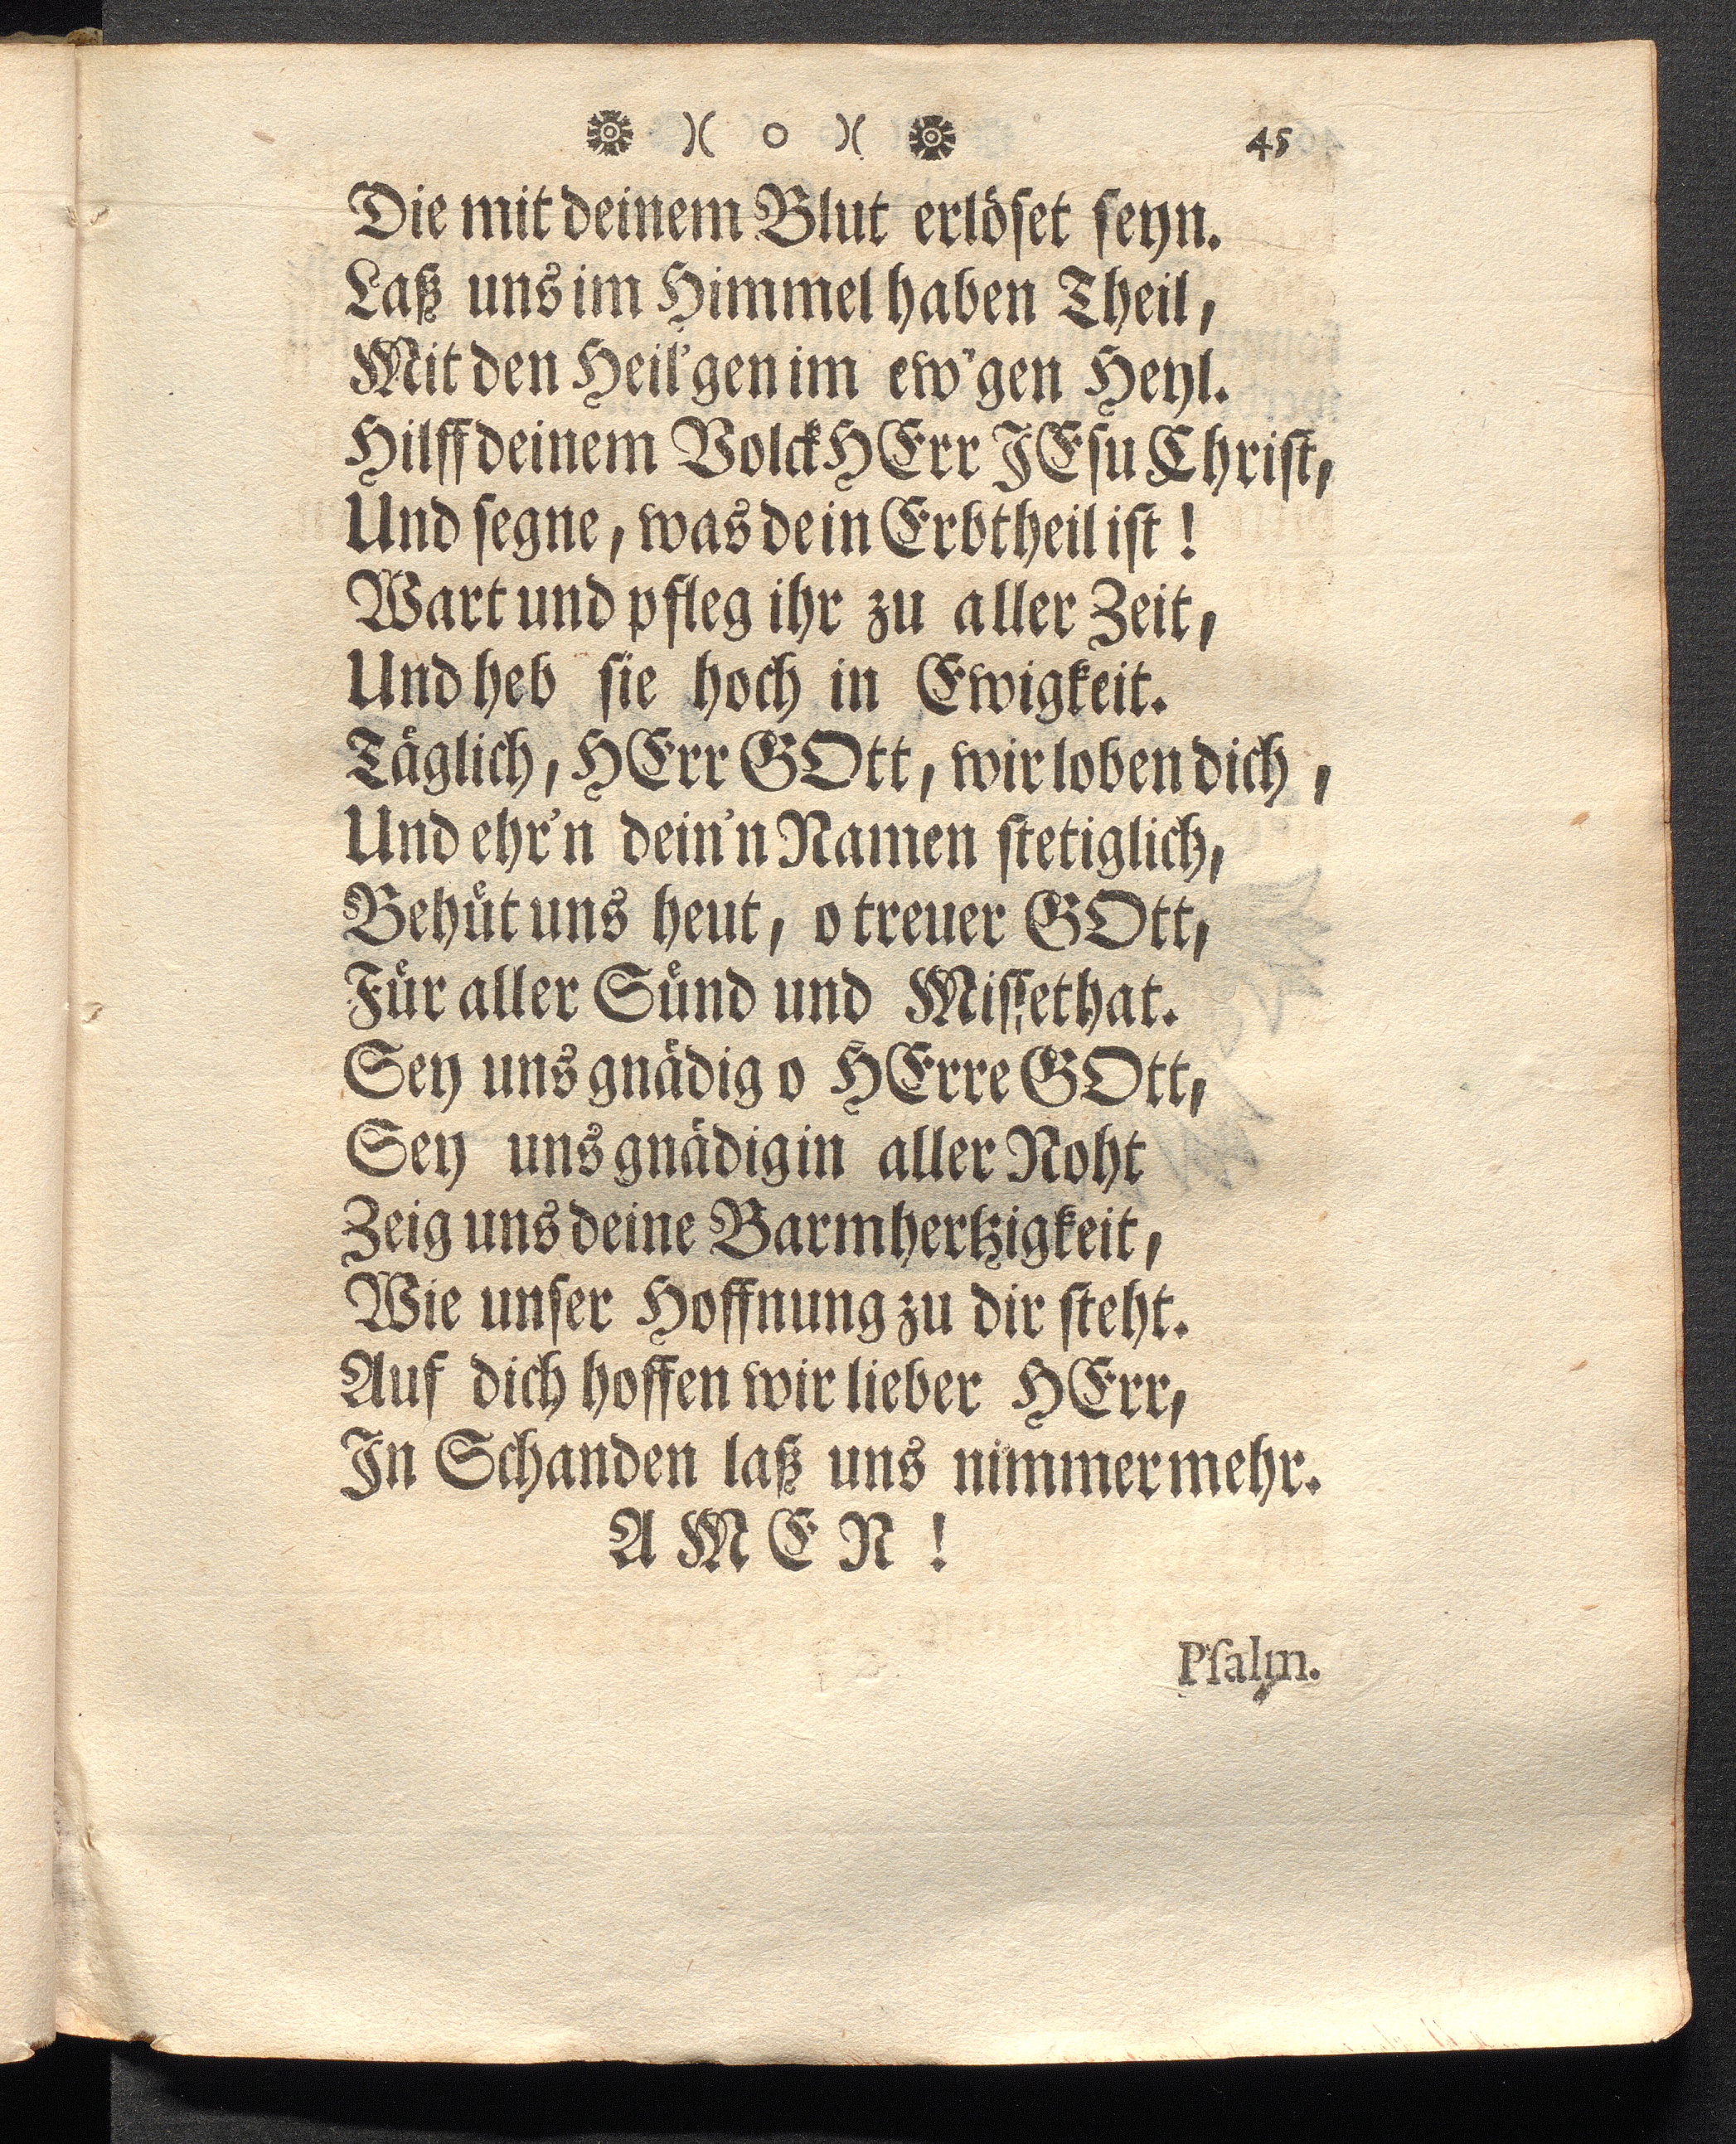 )( o )( 45
Die mit deinem Blut erlöset seyn.
Laß uns im Himmel haben Theil,
Mit den Heil'gen im ew'gen Heyl.
Hilff deinem Volck HErr JEsu Christ,
Und segne, was dein Erbtheil ist!
Wart und pfleg ihr zu aller Zeit,
Und heb sie hoch in Ewigkeit.
Täglich, HErr GOtt, wir loben dich,
Und ehr'n dein'n Namen stetiglich,
Behüt uns heut, o treuer GOtt,
Für aller Sünd und Missethat.
Sey uns gnädig o HErre GOtt,
Sey uns gnädig in aller Noht
Zeig uns deine Barmhertzigkeit,
Wie unser Hoffnung zu dir steht.
Auf dich hoffen wir lieber HErr,
In Schanden laß uns nimmermehr.
AMEN!
Psalm.